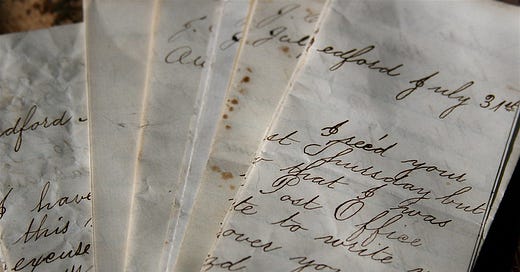 dford -
I have
this
excuse
J.
Au
J.
edford July 31st
I rec'd your
st Thursday but
that I was
Post Office
te to write
over you